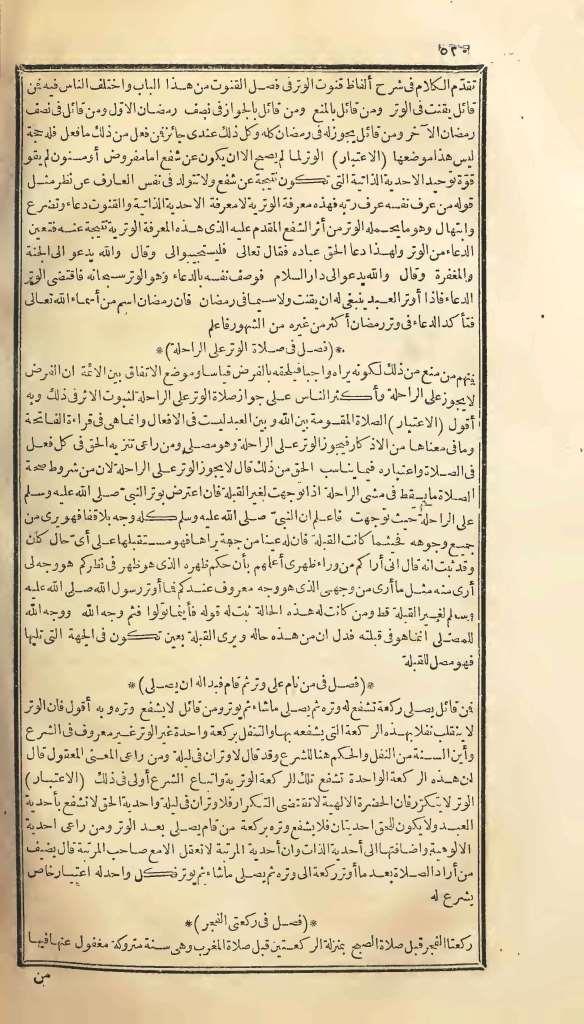 ٥٢٠
تقدم الكلام فى شرح ألفاظ قنوت الوتر فى فصل القنوت من هذا الباب واختلف الناس فيه فمن
قائل يقنت فى الوتر ومن قائل بالمنع ومن قائل بالجواز فى نصف رمضان الاوّل ومن قائل فى نصف
رمضان الآخر ومن قائل يجوز له فى رمضان كله وكل ذلك عندى جائز فمن فعل من ذلك ما فعل فله حجة
ليس هذا موضعها (الاعتبار) الوتر لما لم يصح الا ان يكون عن شفع اما مفروض أو مسنون لم يقو
قوّة توحيد الاحدية الذاتية التى تكون نتيجة عن شفع ولا تتولد فى نفس العارف عن نظر مثل
قوله من عرف نفسه عرف ربه فهذه معرفة الوترية لا معرفة الاحدية الذاتية والقنوت دعاء وتضرع
وابتهال وهو ما يحمله الوتر من أثر الشفع المقدم عليه الذى هذه المعرفة الوترية نتيجة عنه فتعين
الدعاء من الوتر ولهذا دعا الحق عباده فقال تعالى فليستجيبوا لى وقال والله يدعو الى الجنة
والمغفرة وقال والله يدعو الى دار السلام فوصف نفسه بالدعاء وهو الوتر سبحانه فاقتضى الوتر
الدعاء فاذا أوتر العبد ينبغى له ان يقنت ولا سيما فى رمضان فان رمضان اسم من أسماء الله تعالى
فتأكد الدعاء فى وتر رمضان أكثر من غيره من الشهور فاعلم
*(فصل فى صلاة الوتر على الراحلة)*
فمنهم من منع من ذلك لكونه يراه واجبا فيلحقه بالفرض قياسا وموضع الاتفاق بين الائمة ان الفرض
لا يجوز على الراحلة وأكثر الناس على جواز صلاة الوتر على الراحلة لثبوت الاثر فى ذلك وبه
أقول (الاعتبار) الصلاة المقسومة بين الله وبين العبد ليست فى الافعال وانما هى فى قراءة الفاتحة
وما فى معناها من الاذكار فيجوز الوتر على الراحلة وهو مصلى ومن راعى تنزيه الحق فى كل فعل
فى الصلاة واعتباره فيما يناسب الحق من ذلك قال لا يجوز الوتر على الراحلة لان من شروط صحة
الصلاة ما يسقط فى مشى الراحلة اذا توجهت لغير القبلة فان اعترض بوتر النبىّ صلى الله عليه وسلم
على الراحلة حيث توجهت فاعلم ان النبىّ صلى الله عليه وسلم كله وجه بلا قفا فهو يرى من
جميع وجوهه فحيثما كانت القبلة فان له عينا من جهة يراها فهو مستقبلها على أىّ حال كان
وقد ثبت انه قال انى أراكم من وراء ظهرى أعلمهم بأن حكم ظهره الذى هو ظهر فى نظركم هو وجه لى
أرى منه مثل ما أرى من وجهى الذى هو وجه معروف عندكم فما أوتر رسول الله صلى الله عليه
وسلم لغير القبلة قط ومن كانت له هذه الحالة ثبت له قوله فأينما تولوا فثم وجه الله ووجه الله
للمصلى انما هو فى قبلته فدل ان من هذه حاله ويرى القبلة بعين تكون فى الجهة التى تليها
فهو مصل للقبلة
*(فصل فى من نام على وتر ثم قام فبدا له ان يصلى)*
فمن قائل يصلى ركعة تشفع له وتره ثم يصلى ما شاء ثم يوتر ومن قائل لا يشفع وتره وبه أقول فان الوتر
لا ينقلب نفلا بهذه الركعة التى يشفعه بها والتنفل بركعة واحدة غير الوتر غير معروف فى الشرع
وأين السنة من النفل والحكم هنا للشرع وقد قال لا وتران فى ليلة ومن راعى المعنى المعقول قال
ان هذه الركعة الواحدة تشفع تلك الركعة الوترية واتباع الشرع أولى فى ذلك (الاعتبار)
الوتر لا يتكرّر فان الحضرة الالهية لا تقتضى التكرار فلا وتران فى ليلة واحدية الحق لا تشفع بأحدية
العبد ولا يكون للحق احديتان فلا يشفع وتره بركعة من قام يصلى بعد الوتر ومن راعى احدية
الالوهية واضافتها الى أحدية الذات وان أحدية المرتبة لا تعقل الا مع صاحب المرتبة قال يضيف
من أراد الصلاة بعد ما أوتر ركعة الى وتره ثم يصلى ما شاء ثم يوتر فكل واحد له اعتبار خاص
يشرع له
*(فصل فى ركعتى الفجر)*
ركعتا الفجر قبل صلاة الصبح بمنزلة الركعتين قبل صلاة المغرب وهى سنة متروكة مغفول عنها فيها
من